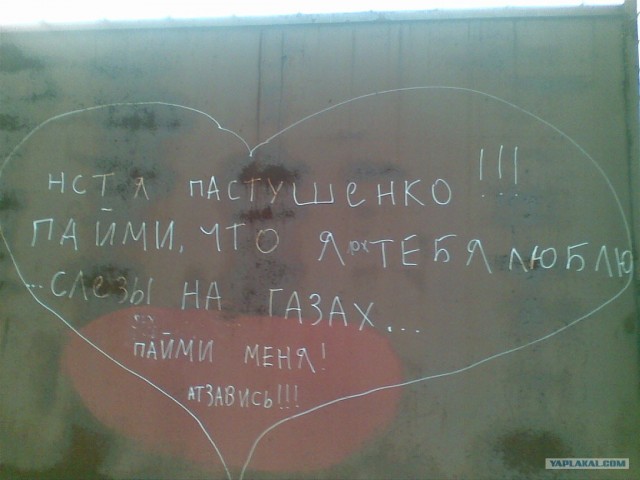 НСТЯ ПАСТУШЕНКО!!!
ПАЙМИ, ЧТО Я ТЕБЯ ЛЮБЛЮ
...СЛЕЗЫ НА ГАЗАХ...
ПАЙМИ МЕНЯ!
АТЗАВИСЬ!!!
YAPLAKAL.COM